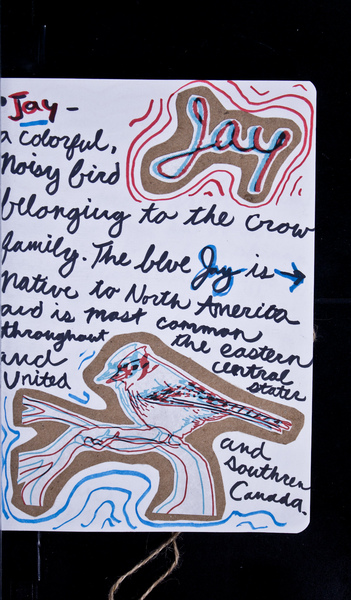 • Jay -
Jay
a colorful,
noisy bird
belonging to the crow
family. The blue Jay is →
native to North America
and is most common
throughout the eastern
and central
United states
and
Southren
Canada.